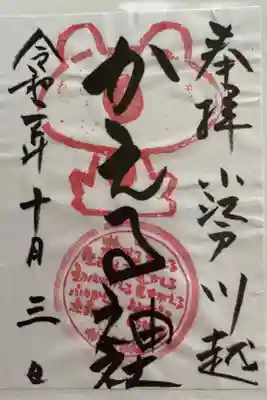 奉拝 小江戸川越
かえる神社
令和二年十月三日